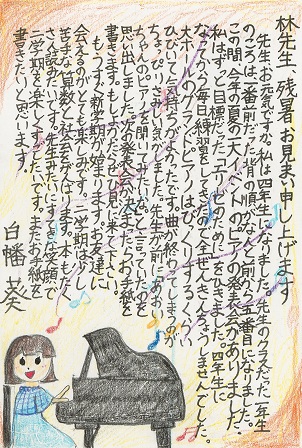 林先生、残暑お見まい申し上げます
先生、お元気ですか。私は四年生になりました。先生のクラスだった一年生
のころは一番前だった背の順が、なんと前から五番目になりました。
この間、今年の夏の大イベントのピアノの発表会がありました。
私はずっと目標だった「エリーゼのために」をひきました。四年生に
なってから毎日練習をしてきたので全ぜんきんちょうしませんでした。
大ホールのグランドピアノはびっくりするくらい
ひびいて気持ちがよかったです。曲が終わってしまうのが
ちょっぴりおしいきがしました。先生が前に「あおい
ちゃんのピアノを聞いてみたいわ。」と言っていたのを
思い出しました。次の発表会が決まったらお手紙を
書きます。もしよかったらぜひ見に来て下さい。
もうすぐ新学期が始まります。お友達に
会えるのがとても楽しみです。二学期は少し
苦手な算数と社会をがんばります。本もたく
さん読みたいです。先生みたいにすてきな笑顔で
二学期を楽しくすごしたいです。またお手紙を
書きたいと思います。
白幡 葵